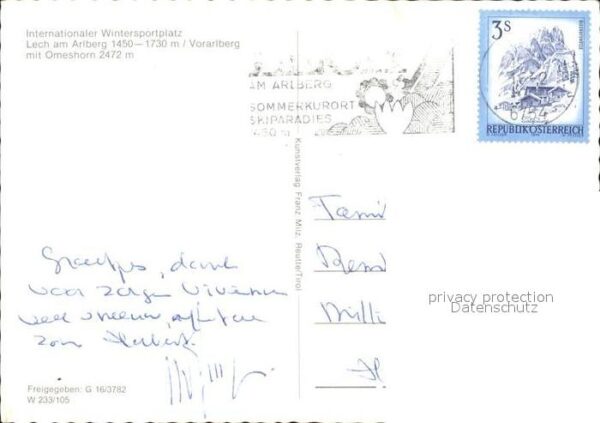 Internationaler Wintersportplatz
Lech am Arlberg 1450—1730 m / Vorarlberg
mit Omeshorn 2472 m
AM ARLBERG
SOMMERKURORT
SKIPARADIES
1450 m
3S
REPUBLIK ÖSTERREICH
Kunstverlag Franz Milz, Reutte/Tirol
Groetjes,
voor zorgen
veel sneeuw,
zon Herbert.
Fami
Rend
Milli
privacy protection
Datenschutz
Freigegeben: G 16/3782
W 233/105